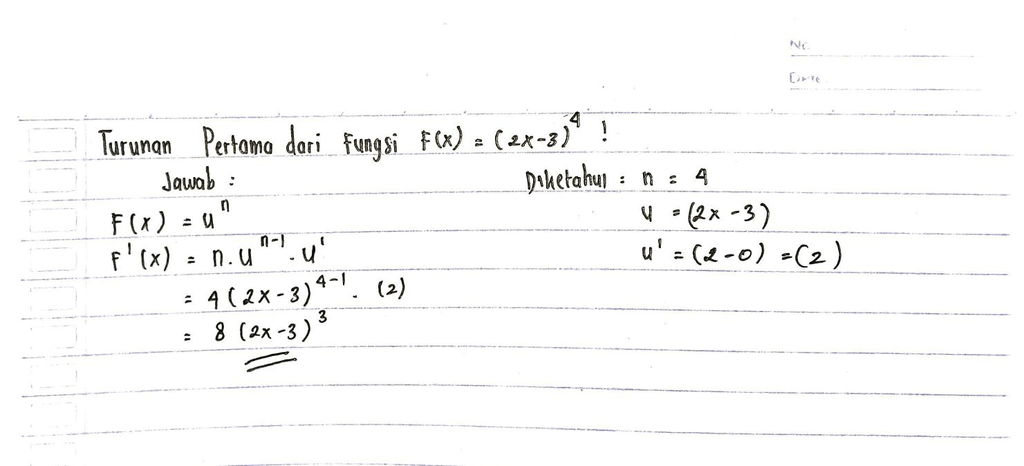 No.
Date
Turunan Pertama dari Fungsi F(x) = (2x-3)⁴ !
Jawab :
F(x) = uⁿ
F'(x) = n.uⁿ⁻¹.u'
= 4(2x-3)⁴⁻¹. (2)
= 8 (2x-3)³
Diketahui : n = 4
u = (2x-3)
u' = (2-0) =(2)